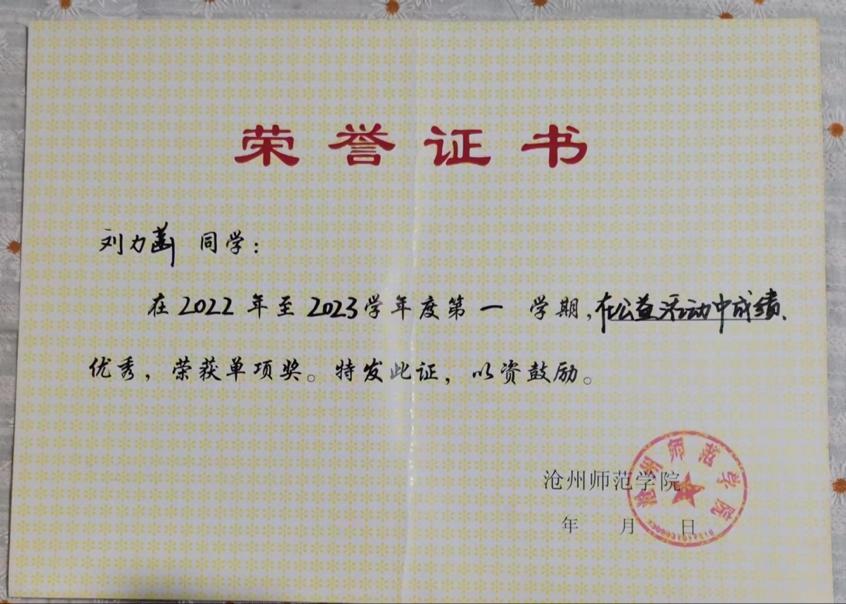 荣誉证书
刘力菡 同学：
在2022年至2023学年度第一学期，在公益活动中成绩
优秀，荣获单项奖。特发此证，以资鼓励。
沧州师范学院
年 月 日
沧州师范学院